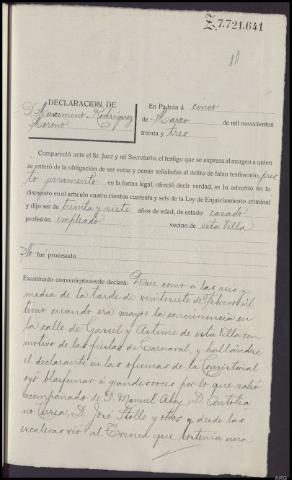 Z.7.721.641
DECLARACION DE
D. Maximino Rodriguez
Moroño
En Padrón á cinco
de Marzo de mil novecientos
treinta y tres
Compareció ante el Sr. Juez y mi Secretario, el testigo que se expresa al margen a quien
se enteró de la obligación de ser veraz y penas señaladas al delito de falso testimonio, pres
tó juramento en la forma legal, ofreció decir verdad, se le advertió en lo
dispuesto en el artículo cuatro cientos cuarenta y seis de la Ley de Enjuiciamiento criminal
y dijo ser de treinta y siete años de edad, de estado casado
profesión empleado vecino de esta Villa
No fue procesado
Examinado convenientemente declara: Que como a las seis y
media de la tarde de veintisiete de Febrero úl
timo cuando era mayor la concurrencia en
la calle de y de esta Villa con
motivo de las fiestas de Carnaval, y hallándose
el declarante en las oficinas de la Consistorial
oyó blasfemar a grandes voces por lo que salió
acompañado de D. Manuel Aboy, D. Antolin
D. José y otros y desde las
escaleras vió al que sostenia una